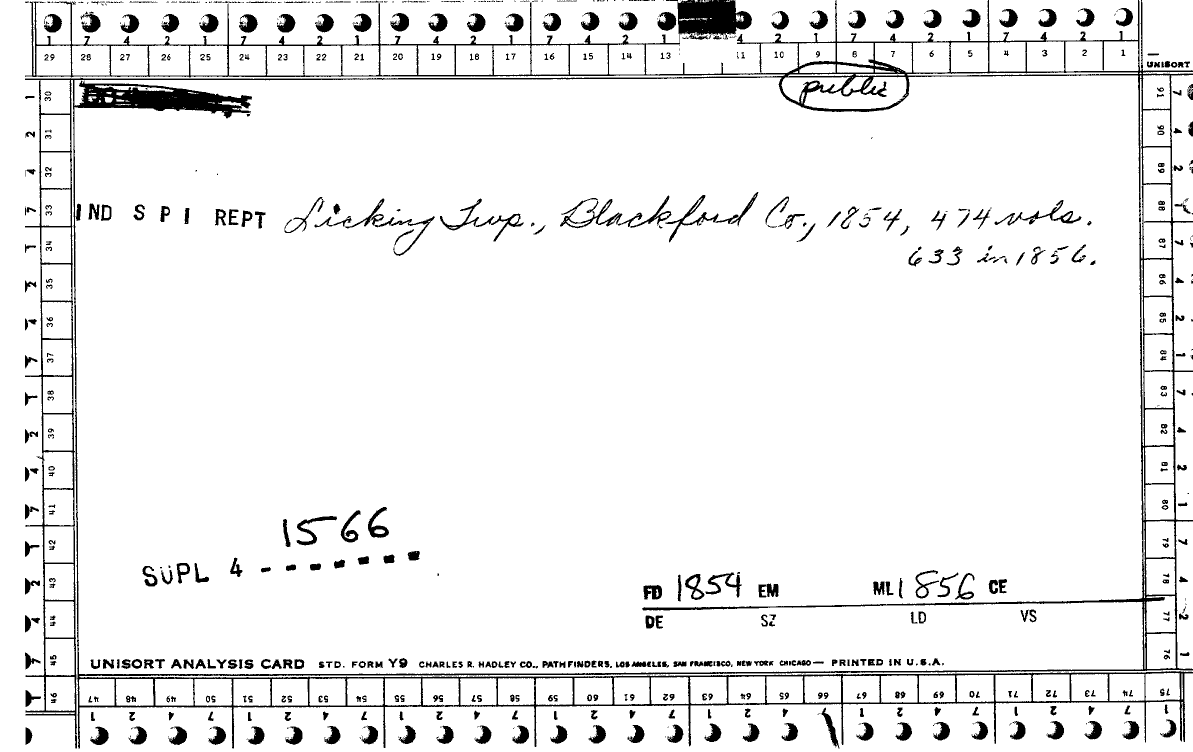 1 7 4 2 1 7 4 2 1 7 4 2 1 7 4 2 1 4 2 1 7 4 2 1 7 4 2 1
29 28 27 26 25 24 23 22 21 20 19 18 17 16 15 14 13 11 10 9 8 7 6 5 4 3 2 1
UNISORT
public
IND S P I REPT Licking Twp., Blackford Co., 1854, 474 vols.
633 in 1856.
1566
SUPL 4 - - - - - - -
FD 1854 EM ML 1856 CE
DE SZ LD VS
UNISORT ANALYSIS CARD STD. FORM Y9 CHARLES R. HADLEY CO., PATHFINDERS, LOS ANGELES, SAN FRANCISCO, NEW YORK CHICAGO — PRINTED IN U.S.A.
30 31 32 33 34 35 36 37 38 39 40 41 42 43 44 45 46
91 90 89 88 87 86 85 84 83 82 81 80 79 78 77 76
47 48 49 50 51 52 53 54 55 56 57 58 59 60 61 62 63 64 65 66 67 68 69 70 71 72 73 74 75